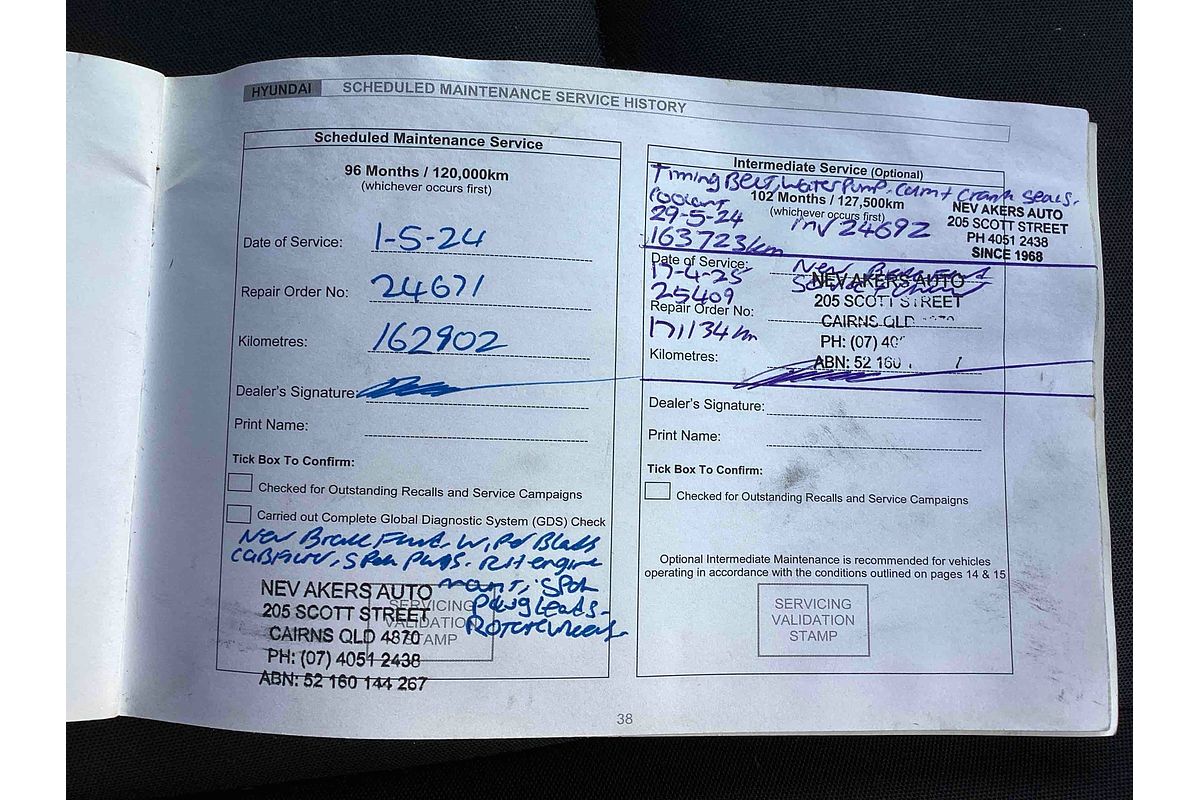 HYUNDAI SCHEDULED MAINTENANCE SERVICE HISTORY
Scheduled Maintenance Service
96 Months / 120,000km
(whichever occurs first)
Date of Service: 1-5-24
Repair Order No: 24671
Kilometres: 162902
Dealer's Signature:
Print Name:
Tick Box To Confirm:
Checked for Outstanding Recalls and Service Campaigns
Carried out Complete Global Diagnostic System (GDS) Check
New Brake Fluid, Wiper Blades
Spark Plugs. RH engine
mount, Spark
Plug Leads-
Rotate wheels
NEV AKERS AUTO
205 SCOTT STREET
CAIRNS QLD 4870
PH: (07) 4051 2438
ABN: 52 160 144 267
SERVICING
VALIDATION
STAMP
Intermediate Service (Optional)
Timing Belt, Water Pump. Cam + Crank Seals.
Coolant 102 Months / 127,500km
(whichever occurs first)
29-5-24 INV 24692
163723km
NEV AKERS AUTO
205 SCOTT STREET
PH 4051 2438
SINCE 1968
Date of Service:
17-4-25 New
25409
Repair Order No:
171134km
Kilometres:
NEV AKERS AUTO
205 SCOTT STREET
CAIRNS QLD 4870
PH: (07)
ABN: 52 160
Dealer's Signature:
Print Name:
Tick Box To Confirm:
Checked for Outstanding Recalls and Service Campaigns
Optional Intermediate Maintenance is recommended for vehicles
operating in accordance with the conditions outlined on pages 14 & 15
SERVICING
VALIDATION
STAMP
38